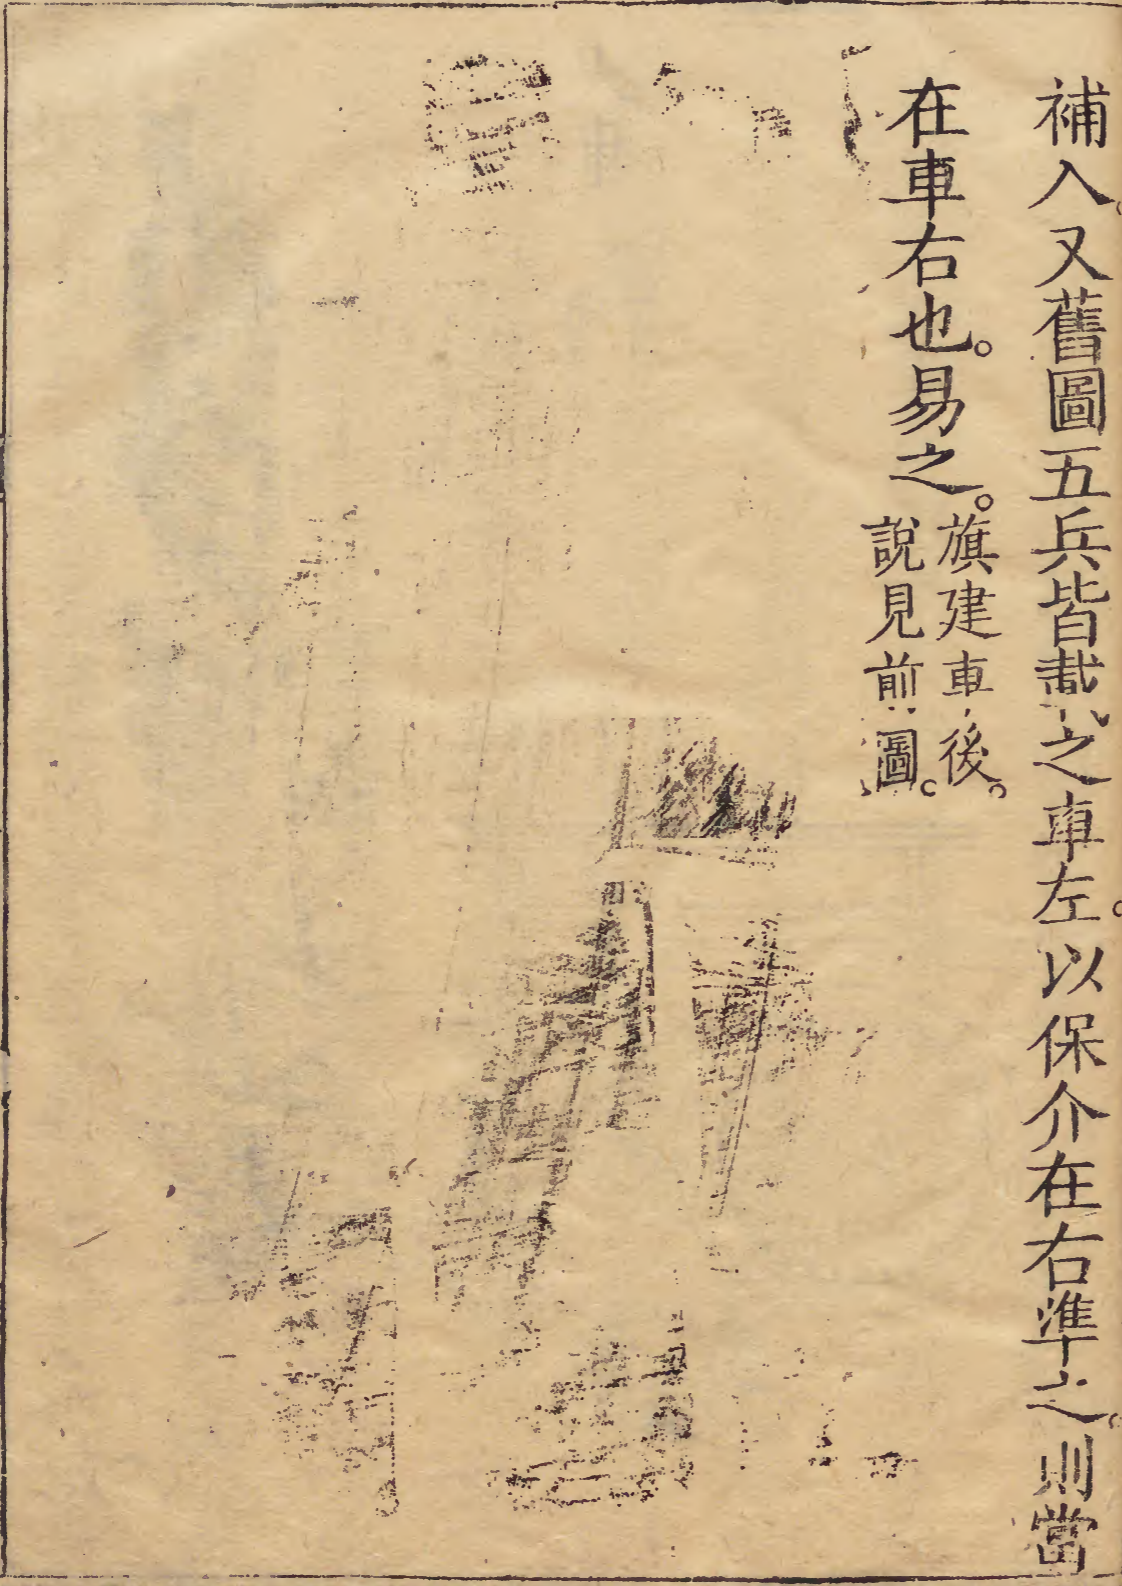 補入。又舊圖五兵皆載之車左。以保介在右準之。則當
在車右也。易之。
旗建車後。
說見前圖。